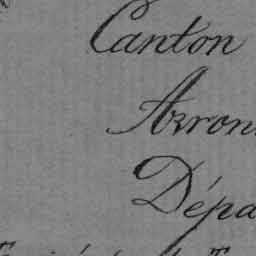 Canton
Arron
Dépa